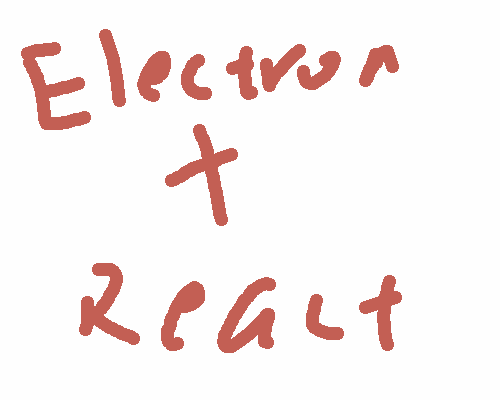 Electron
+
React